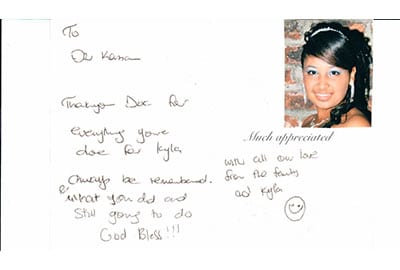 To
Dr
Thankyou Doc for
everything youve
done for Kyla
Always be remembered.
what you did and
Still going to do
God Bless!!!
Much appreciated
with all our love
from the family
and Kyla